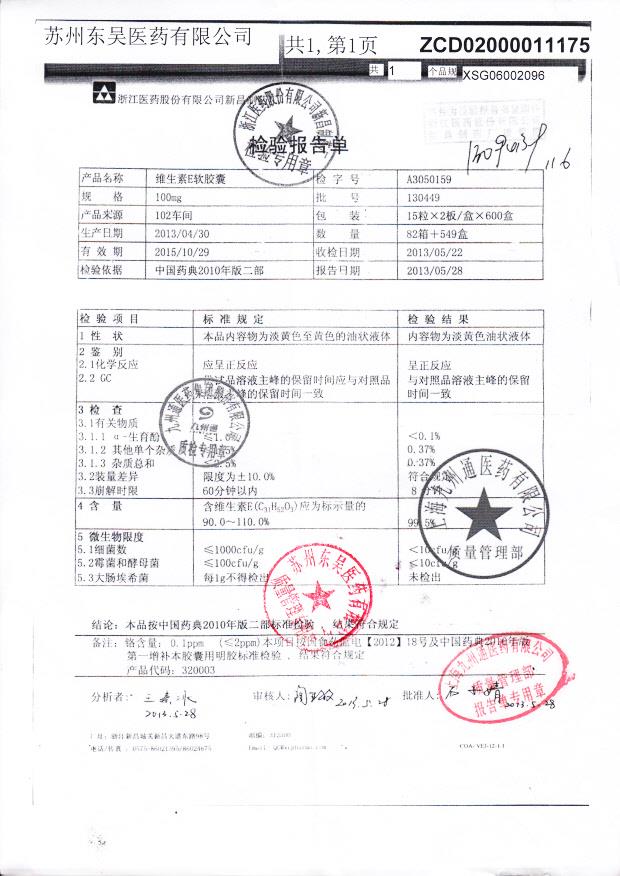 苏州东吴医药有限公司
共1,第1页
ZCD02000011175
共 1 个品规 XSG06002096
浙江医药股份有限公司新昌
检验报告单
产品名称 维生素E软胶囊 检字号 A3050159
规 格 100mg 批 号 130449
产品来源 102车间 包 装 15粒×2板/盒×600盒
生产日期 2013/04/30 数 量 82箱+549盒
有 效 期 2015/10/29 收检日期 2013/05/22
检验依据 中国药典2010年版二部 报告日期 2013/05/28
检 验 项 目 标 准 规 定 检 验 结 果
1 性 状 本品内容物为淡黄色至黄色的油状液体 内容物为淡黄色油状液体
2 鉴 别
2.1化学反应 应呈正反应 呈正反应
2.2 GC 供试品溶液主峰的保留时间应与对照品 与对照品溶液主峰的保留
主峰的保留时间一致 时间一致
3 检 查
3.1有关物质
3.1.1 α-生育酚 <0.1%
3.1.2 其他单个杂质 0.37%
3.1.3 杂质总和 0.37%
3.2装量差异 限度为±10.0% 符合规定
3.3崩解时限 60分钟以内 8
4 含 量 含维生素E(C₃₁H₅₂O₃)应为标示量的
90.0~110.0% 99.5%
5 微生物限度
5.1细菌数 ≤1000cfu/g <10cfu/g
5.2霉菌和酵母菌 ≤100cfu/g
5.3大肠埃希菌 每1g不得检出 未检出
结论: 本品按中国药典2010年版二部标准检验 , 结果符合规定
备注: 铬含量: 0.1ppm (≤2ppm)本项目按 电【2012】18号及中国药典2010年版
第一增补本胶囊用明胶标准检验 , 结果符合规定
产品代码: 320003
分析者: 审核人: 批准人:
2013.5.28 2013.5.28 2013.5.28
厂址: 浙江新昌城关新昌大道东路98号 邮编: 312500
电话/传真 : 0575-86021395/86024675
COA/VE3-12-1.1
浙江医药股份有限公司新昌制药厂
检验专用章
九州通医药集团股份有限公司
九州通
质检专用章
上海九州通医药有限公司
质量管理部
苏州东吴医药有限公司
上海九州通医药有限公司
质量管理部
报告单专用章